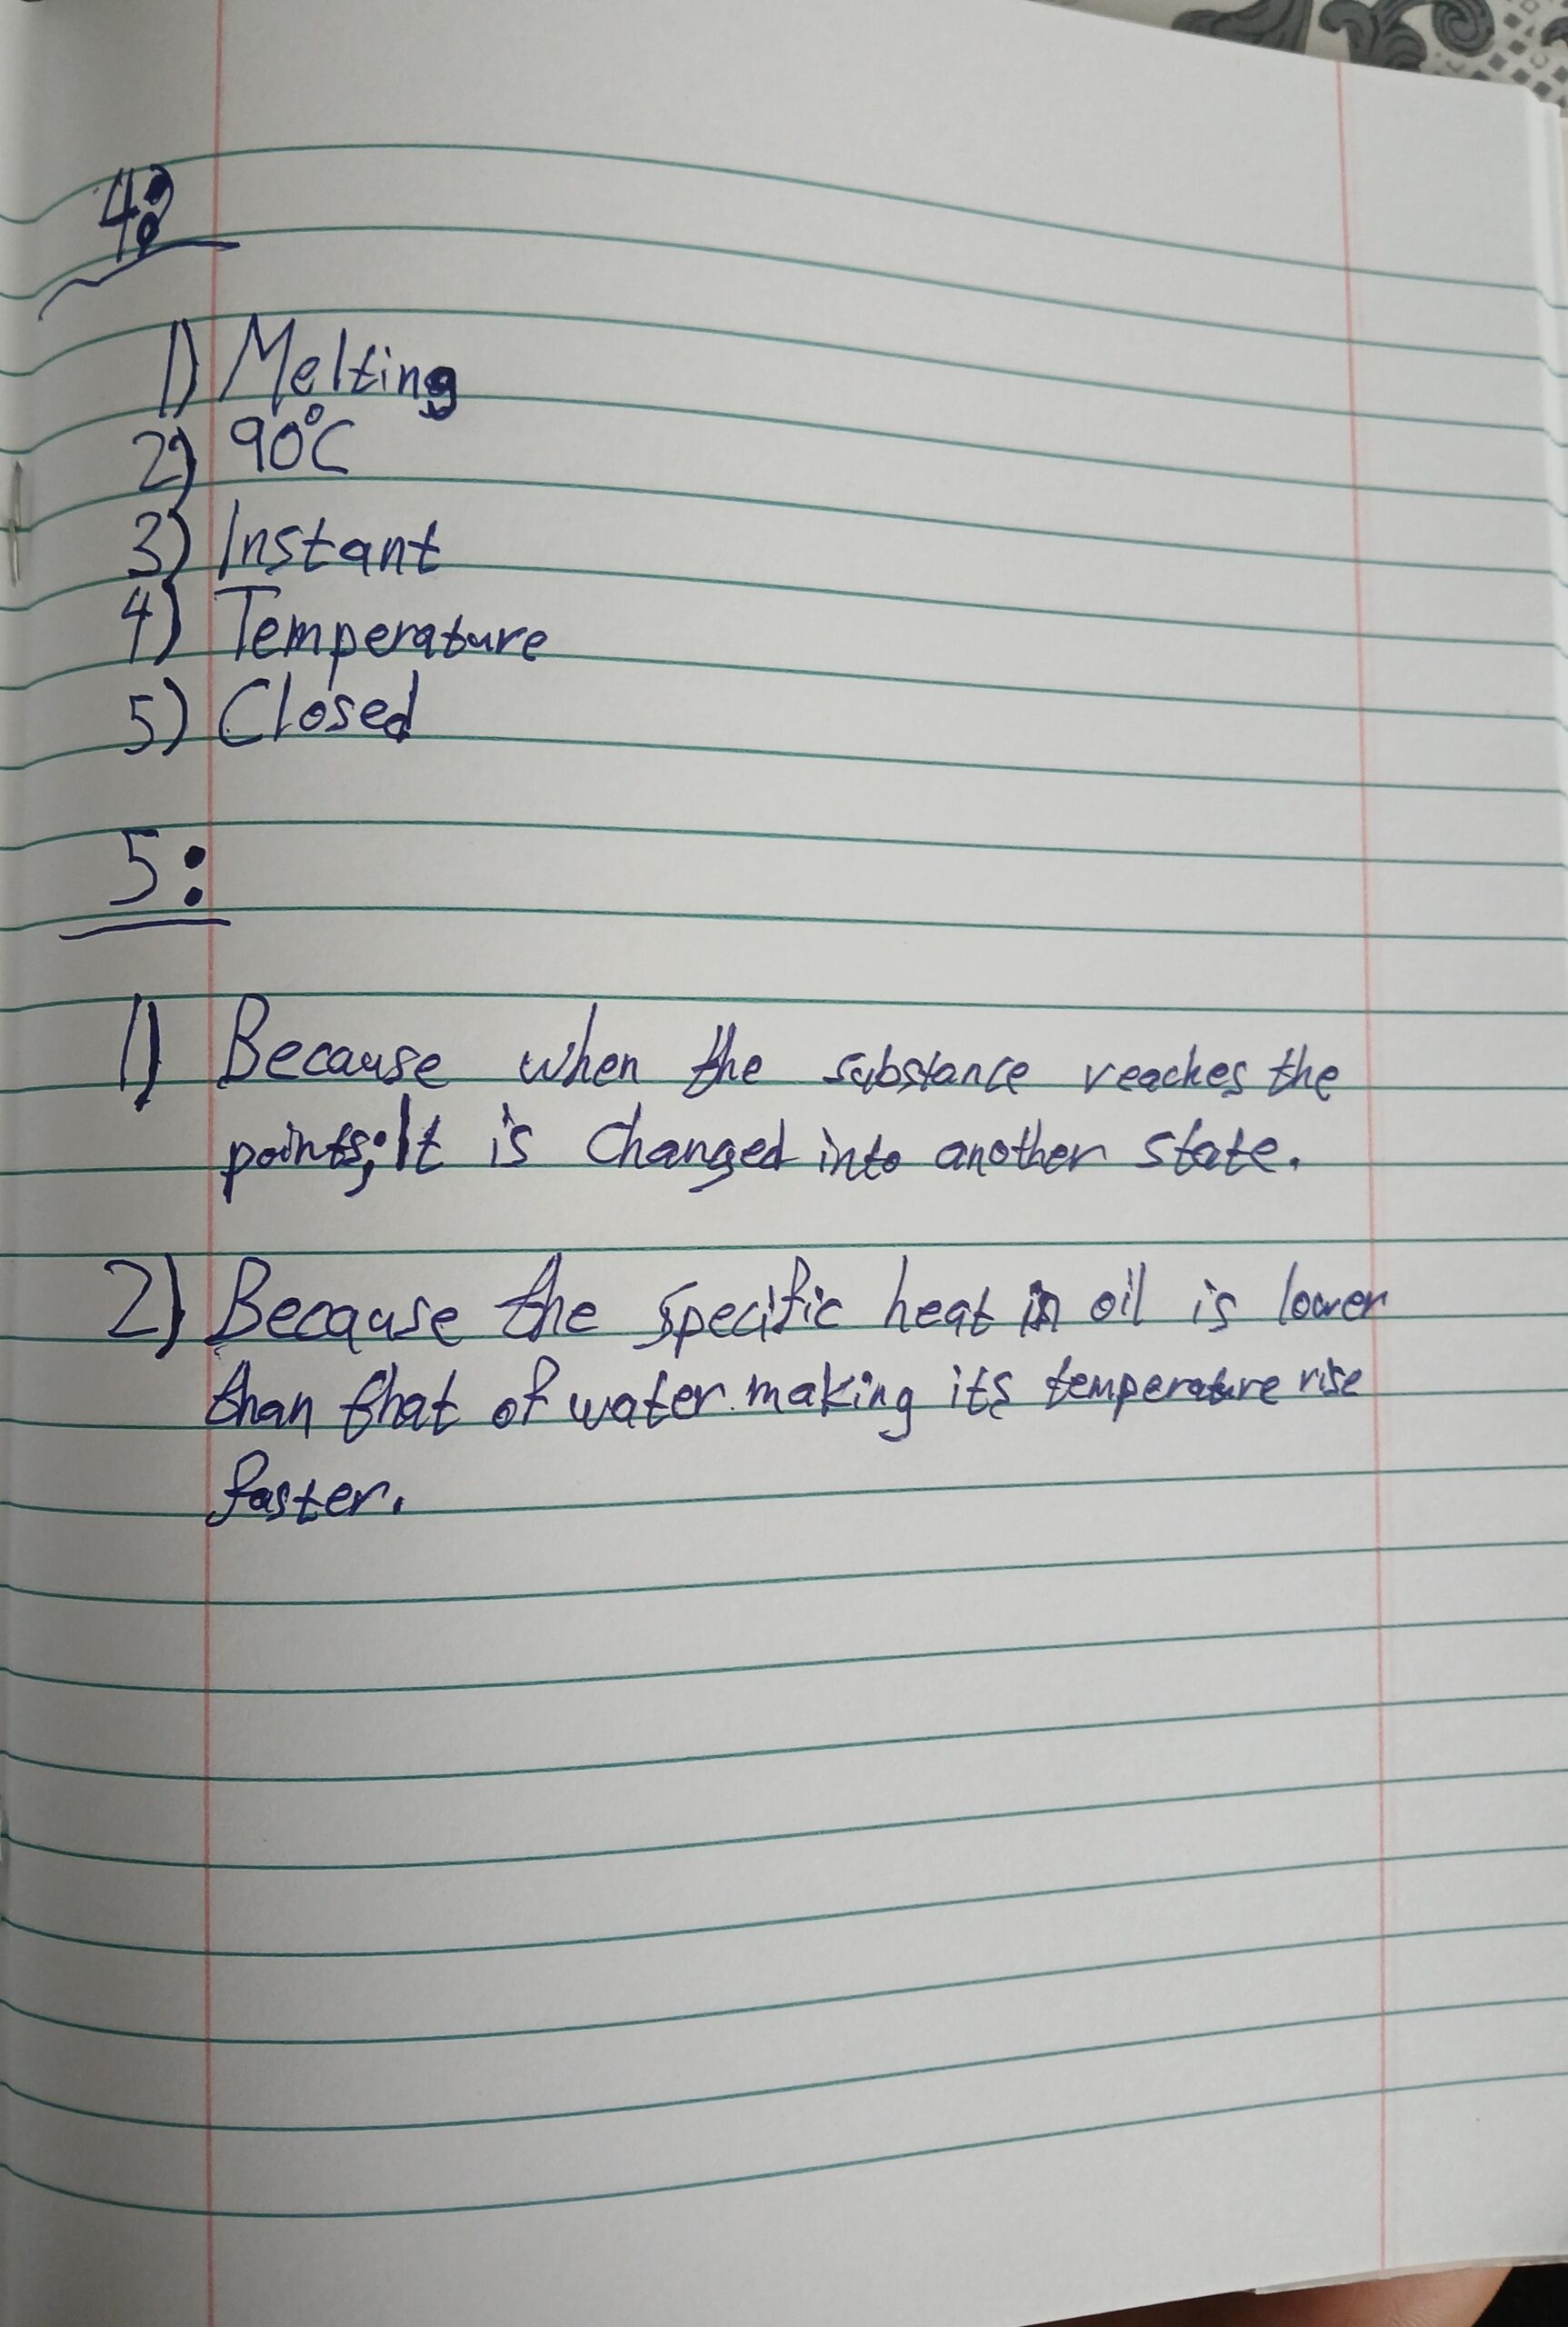 4:
1) Melting
2) 90°C
3) Instant
4) Temperature
5) Closed
5:
1) Because when the substance reaches the
points; It is changed into another state.
2) Because the specific heat in oil is lower
than that of water making its temperature rise
faster.